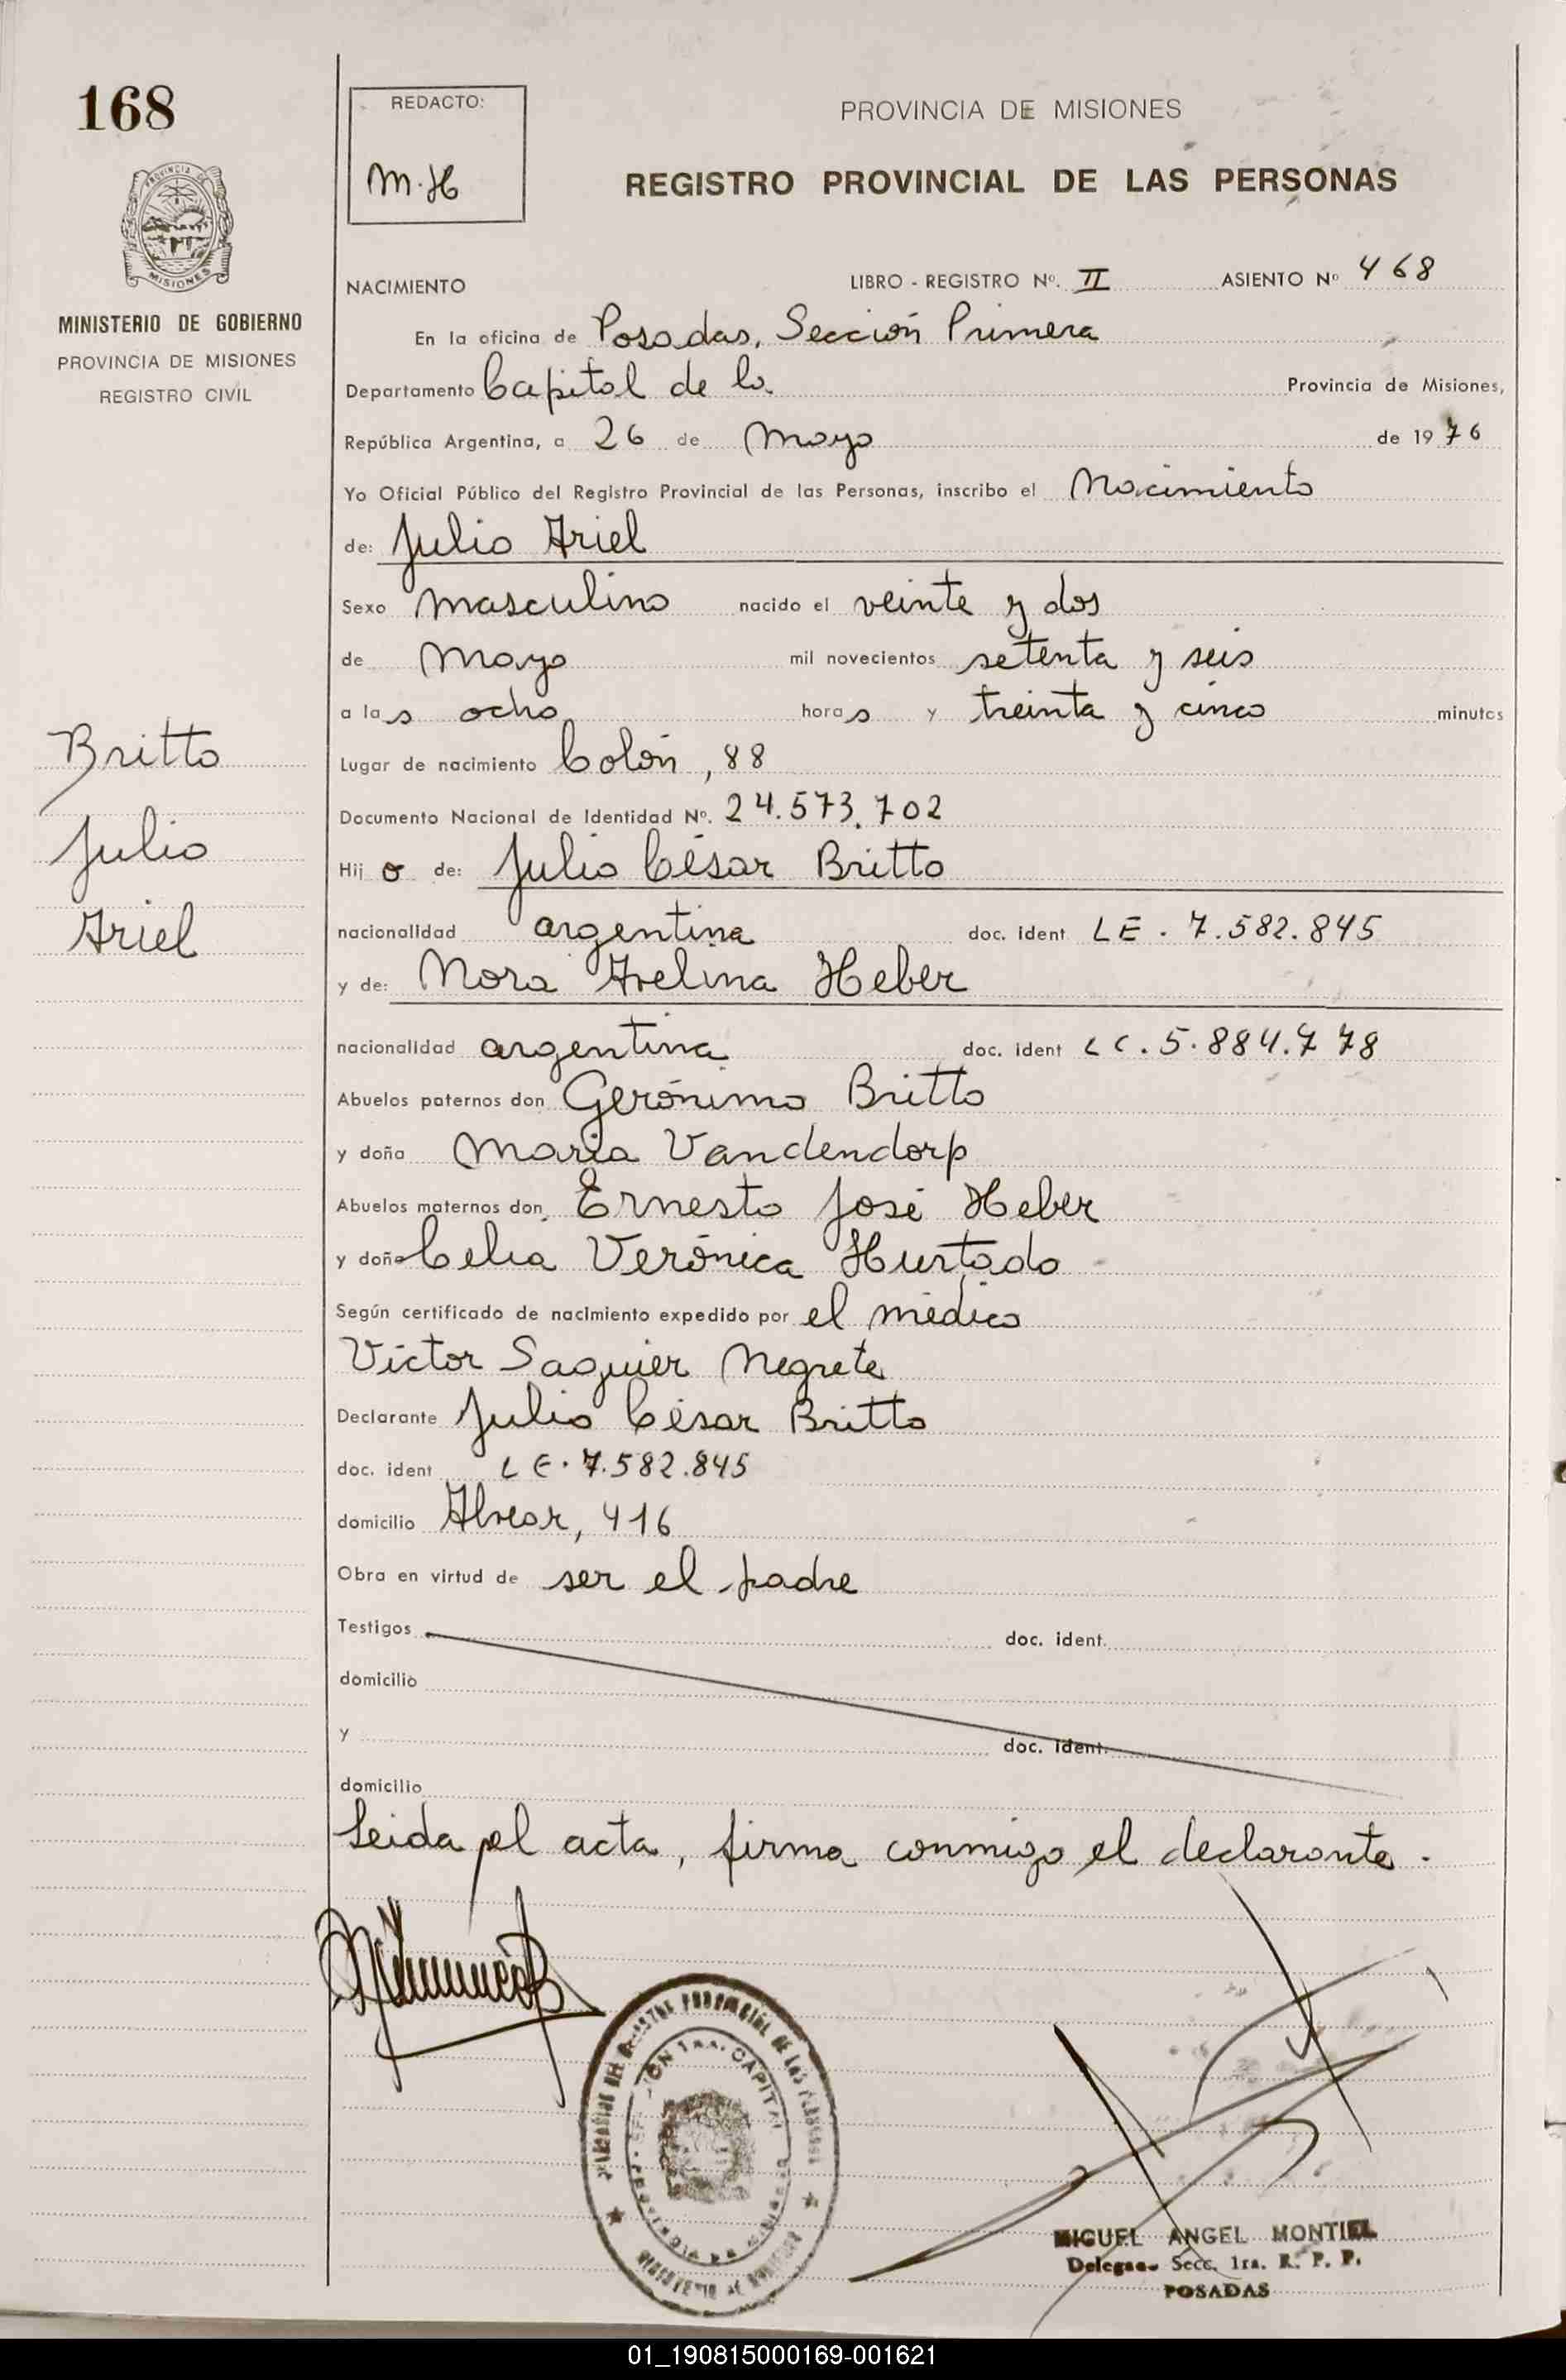 168
REDACTO:
M.H
PROVINCIA DE MISIONES
REGISTRO PROVINCIAL DE LAS PERSONAS
MISIONES
MINISTERIO DE GOBIERNO
PROVINCIA DE MISIONES
REGISTRO CIVIL
NACIMIENTO LIBRO - REGISTRO Nº. II ASIENTO Nº 468
En la oficina de Posadas, Sección Primera
Departamento Capital de la Provincia de Misiones,
República Argentina, a 26 de Mayo de 1976
Yo Oficial Público del Registro Provincial de las Personas, inscribo el Nacimiento
de: Julio Ariel
Sexo masculino nacido el veinte y dos
de Mayo mil novecientos setenta y seis
a las ocho horas y treinta y cinco minutos
Lugar de nacimiento Colón, 88
Documento Nacional de Identidad Nº. 24.573.702
Hijo de: Julio César Britto
nacionalidad argentina doc. ident LE. 7.582.845
y de: Nora Avelina Heber
nacionalidad argentina doc. ident LC. 5.884.778
Abuelos paternos don Gerónimo Britto
y doña Maria Vandendorp
Abuelos maternos don Ernesto José Heber
y doña Celia Verónica Hurtado
Según certificado de nacimiento expedido por el médico
Víctor Saguier Negrete
Declarante Julio César Britto
doc. ident LE. 7.582.845
domicilio Alvear, 416
Obra en virtud de ser el padre
Testigos doc. ident.
domicilio
y doc. ident.
domicilio
Leida el acta, firma conmigo el declarante.
Britto
Julio
Ariel
MIGUEL ANGEL MONTIEL
Delegado Secc. 1ra. R. P. P.
POSADAS
01_190815000169-001621